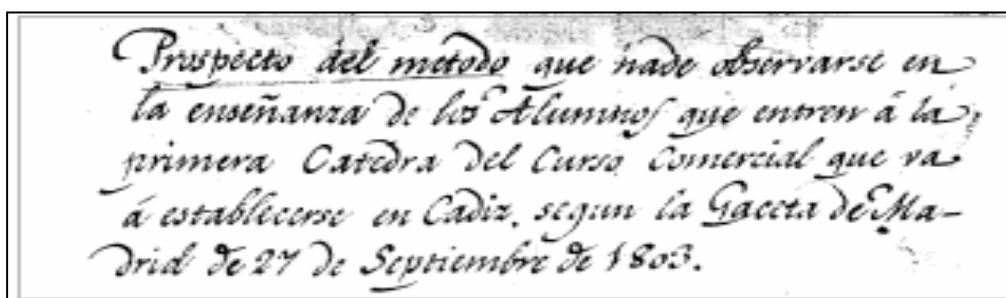 Prospecto del metodo que hade observarse en
la enseñanza de los Alumnos que entren á la
primera Catedra del Curso Comercial que va
á establecerse en Cadiz, segun la Gaceta de Ma-
drid de 27 de Septiembre de 1803.